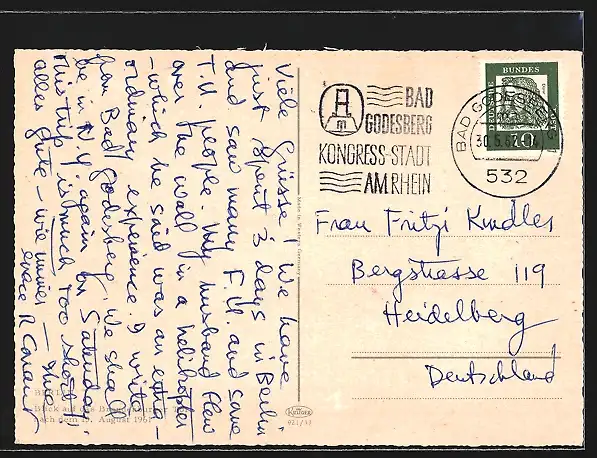 Viele Grüsse! We have
just spent 3 days in Berlin
and saw many F.U. and some
T.U. people. My husband flew
over the wall in a helicopter
- which he said was an extra-
ordinary experience. I write
from Bad Godesberg. We shall
be in N.Y. again by Saturday.
This trip is much too short!
alles Gute - wie immer -
BERLIN
Blick auf das Brandenburger Tor
nach dem 13. August 1961
Made in Western Germany
Krüger
BAD
GODESBERG
KONGRESS-STADT
AM RHEIN
DEUTSCHE
BUNDES
BAD GODESBERG
532
Frau Fritzi Kindler
Bergstrasse 119
Heidelberg
Deutschland